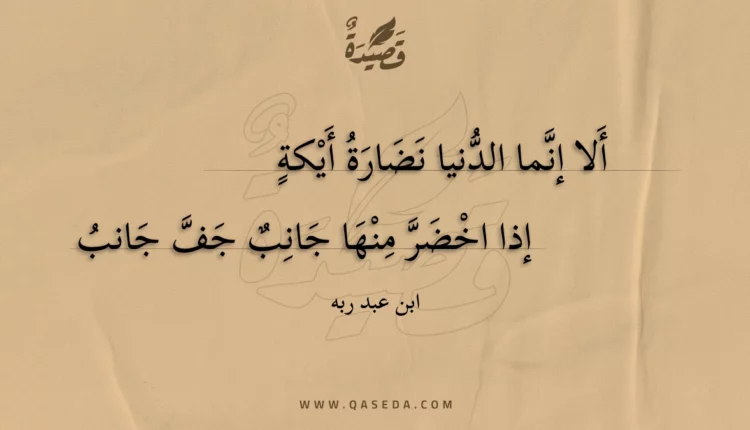 قَصِيْدَةٌ
أَلا إنَّما الدُّنيا نَضَارَةُ أَيْكةٍ
إذا اخْضَرَّ مِنْهَا جَانِبٌ جَفَّ جَانبُ
ابن عبد ربه
WWW.QASEDA.COM